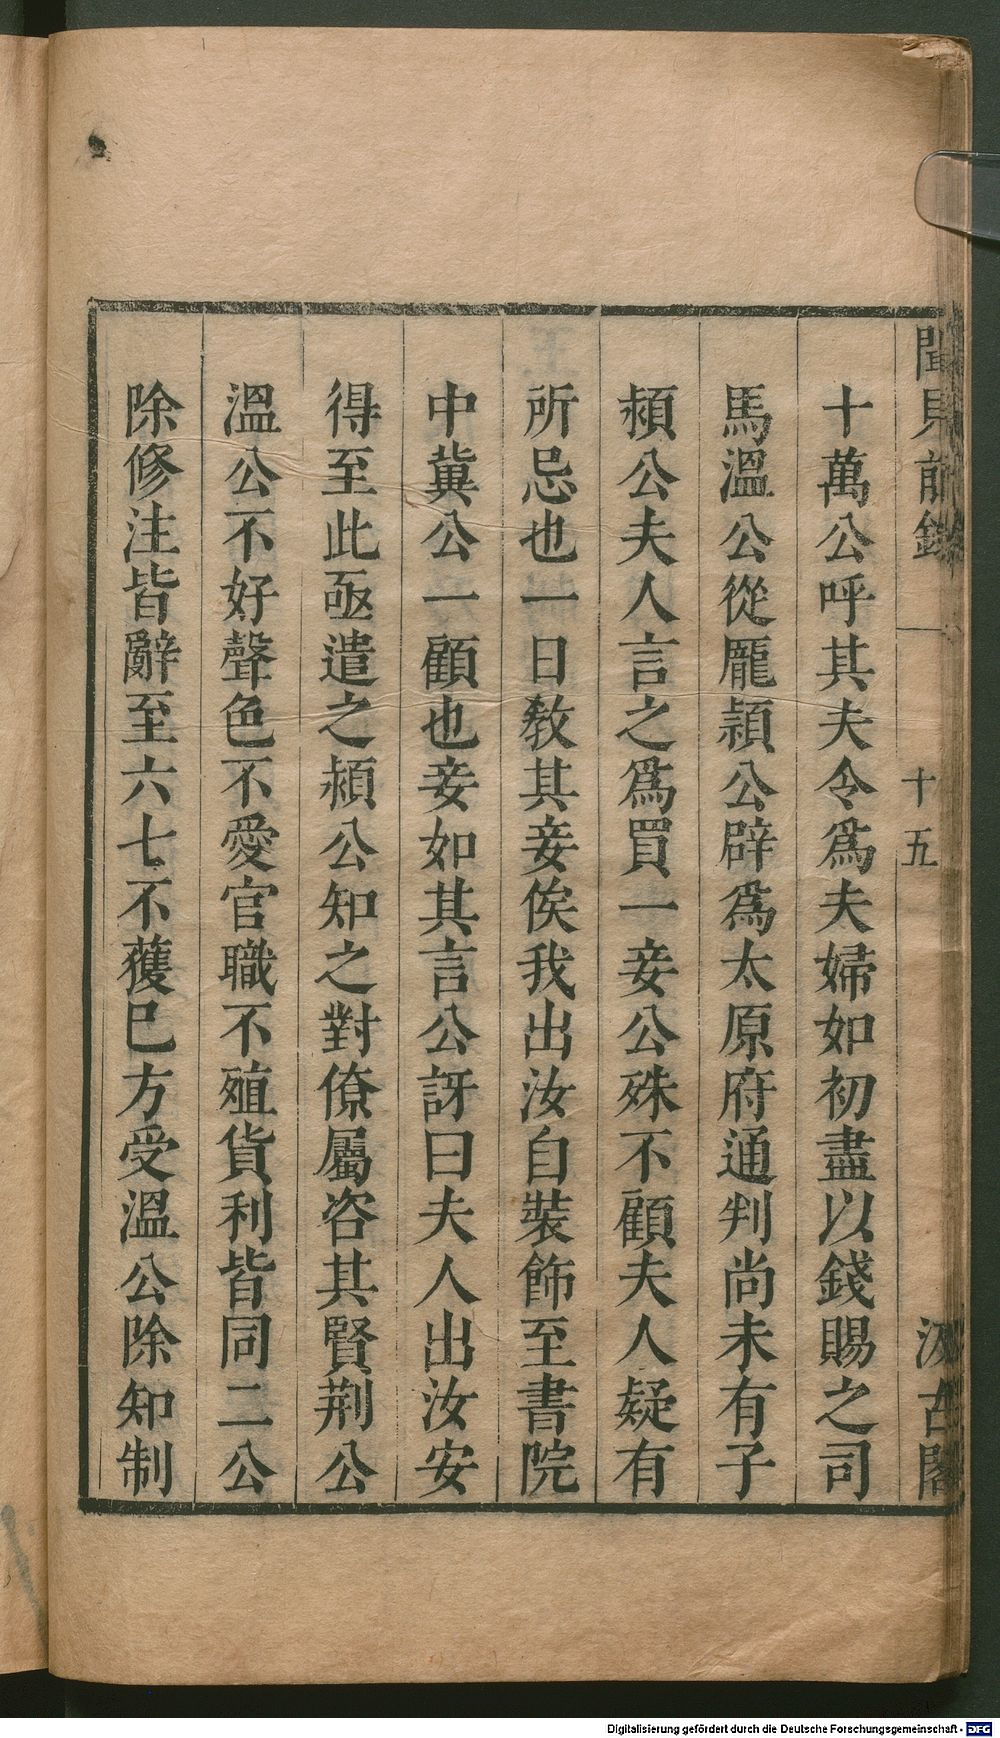 聞見前錄
十五
汲古閣
十萬公呼其夫令爲夫婦如初盡以錢賜之司
馬溫公從龐頴公辟爲太原府通判尚未有子
頴公夫人言之爲買一妾公殊不顧夫人疑有
所忌也一日敎其妾俟我出汝自裝飾至書院
中冀公一顧也妾如其言公訝曰夫人出汝安
得至此亟遣之頴公知之對僚屬咨其賢荆公
溫公不好聲色不愛官職不殖貨利皆同二公
除修注皆辭至六七不獲已方受溫公除知制
Digitalisierung gefördert durch die Deutsche Forschungsgemeinschaft - DFG